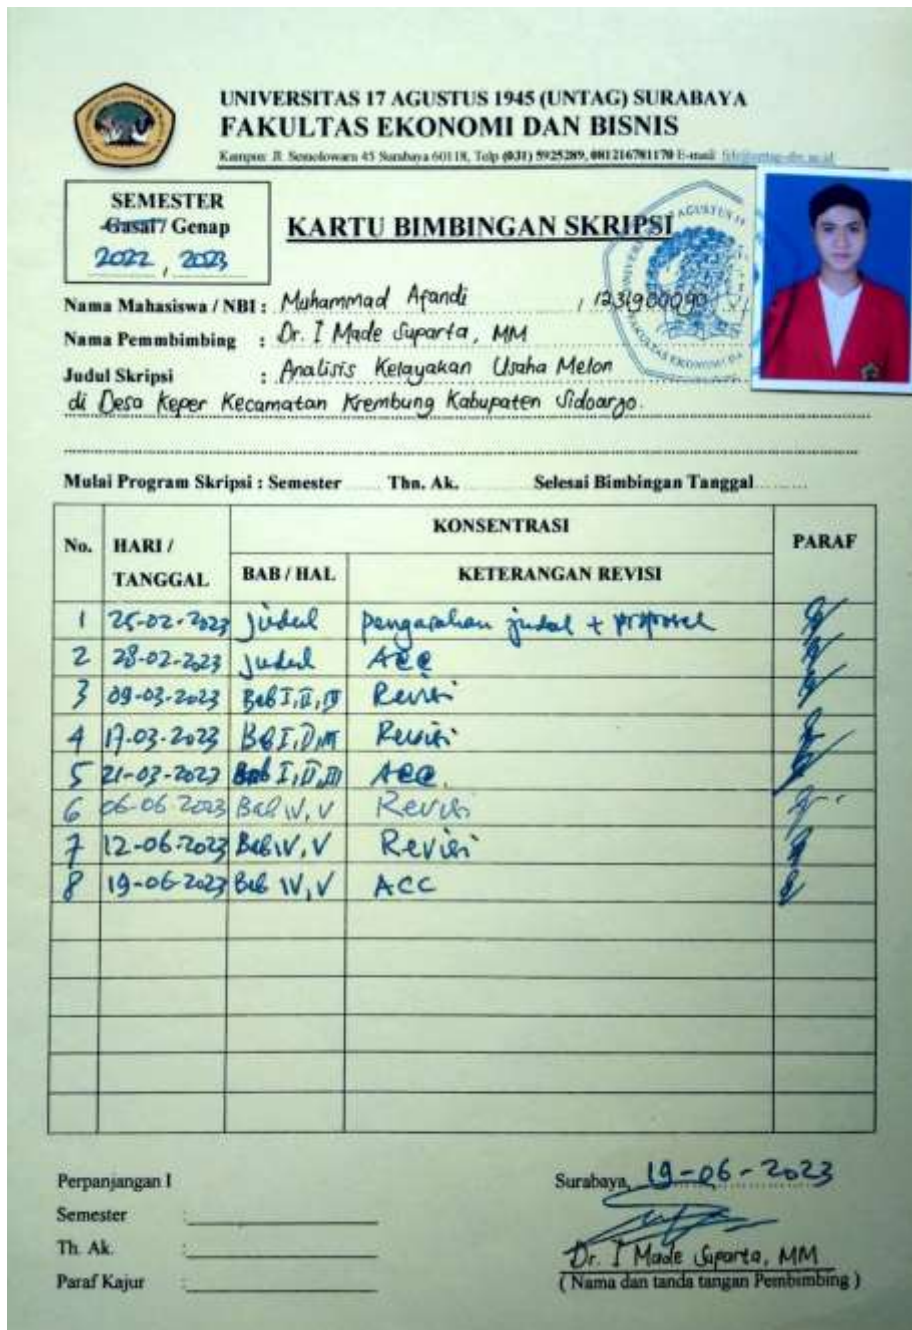 UNIVERSITAS 17 AGUSTUS 1945 (UNTAG) SURABAYA
FAKULTAS EKONOMI DAN BISNIS
Kampus: Jl. Semolowaru 45 Surabaya 60118, Telp (031) 5925289, 081216781170 E-mail:
SEMESTER
Gasal / Genap
2022, 2023
KARTU BIMBINGAN SKRIPSI
Nama Mahasiswa / NBI : Muhammad Afandi / 1231900090
Nama Pemmbimbing : Dr. I Made Suparta, MM
Judul Skripsi : Analisis Kelayakan Usaha Melon
di Desa Keper Kecamatan Krembung Kabupaten Sidoarjo.
Mulai Program Skripsi : Semester Thn. Ak. Selesai Bimbingan Tanggal
No. HARI / TANGGAL KONSENTRASI PARAF
BAB / HAL KETERANGAN REVISI
1 25-02-2023 judul pengarahan judul + proposal
2 28-02-2023 judul Acc
3 09-03-2023 Bab I, II, III Revisi
4 17-03-2023 Bab I, II, III Revisi
5 21-03-2023 Bab I, II, III Acc.
6 06-06 2023 Bab IV, V Revisi
7 12-06-2023 Bab IV, V Revisi
8 19-06-2023 Bab IV, V ACC
Perpanjangan I
Semester :
Th. Ak. :
Paraf Kajur :
Surabaya, 19-06-2023
Dr. I Made Suparta, MM
( Nama dan tanda tangan Pembimbing )